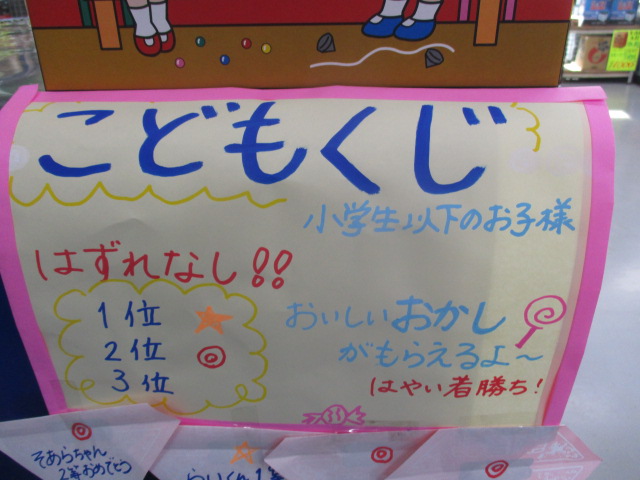 こどもくじ
小学生以下のお子様
はずれなし!!
1位
2位
3位
おいしいおかし
がもらえるよ〜
はやい者勝ち!
そあらちゃん
2等おめでとう